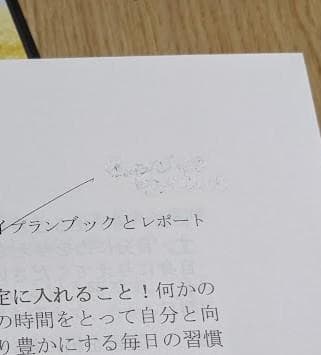 イプランブックとレポート
定に入れること！何かの
の時間をとって自分と向
り豊かにする毎日の習慣